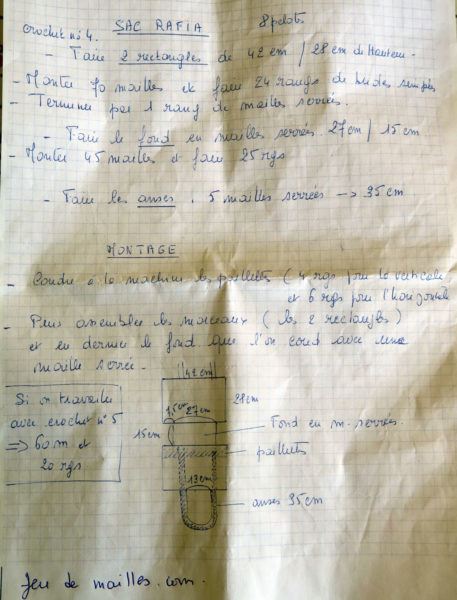 crochet n° 4. SAC RAFIA 8 pelotes
- Faire 2 rectangles de 42 cm / 28 cm de Hauteur.
- Monter 70 mailles et faire 24 rangs de brides simples
- Terminer par 1 rang de mailles serrées.
- Faire le fond en mailles serrées 27cm / 15 cm
- Monter 45 mailles et faire 25 rgs
- Faire les anses. 5 mailles serrées -> 35 cm
MONTAGE
- Coudre à la machine les paillettes (4 rgs pour la verticale
et 6 rgs pour l'horizontale
- Puis assembler les morceaux (les 2 rectangles)
et en dernier le fond que l'on coud avec une
maille serrée.
42 cm
28cm
7,5cm 27cm
15cm
Fond en m. serrées.
paillettes
13cm
anses 35cm
Si on travaille
avec crochet n° 5
=> 60 m et
20 rgs
Jeu de mailles.com.